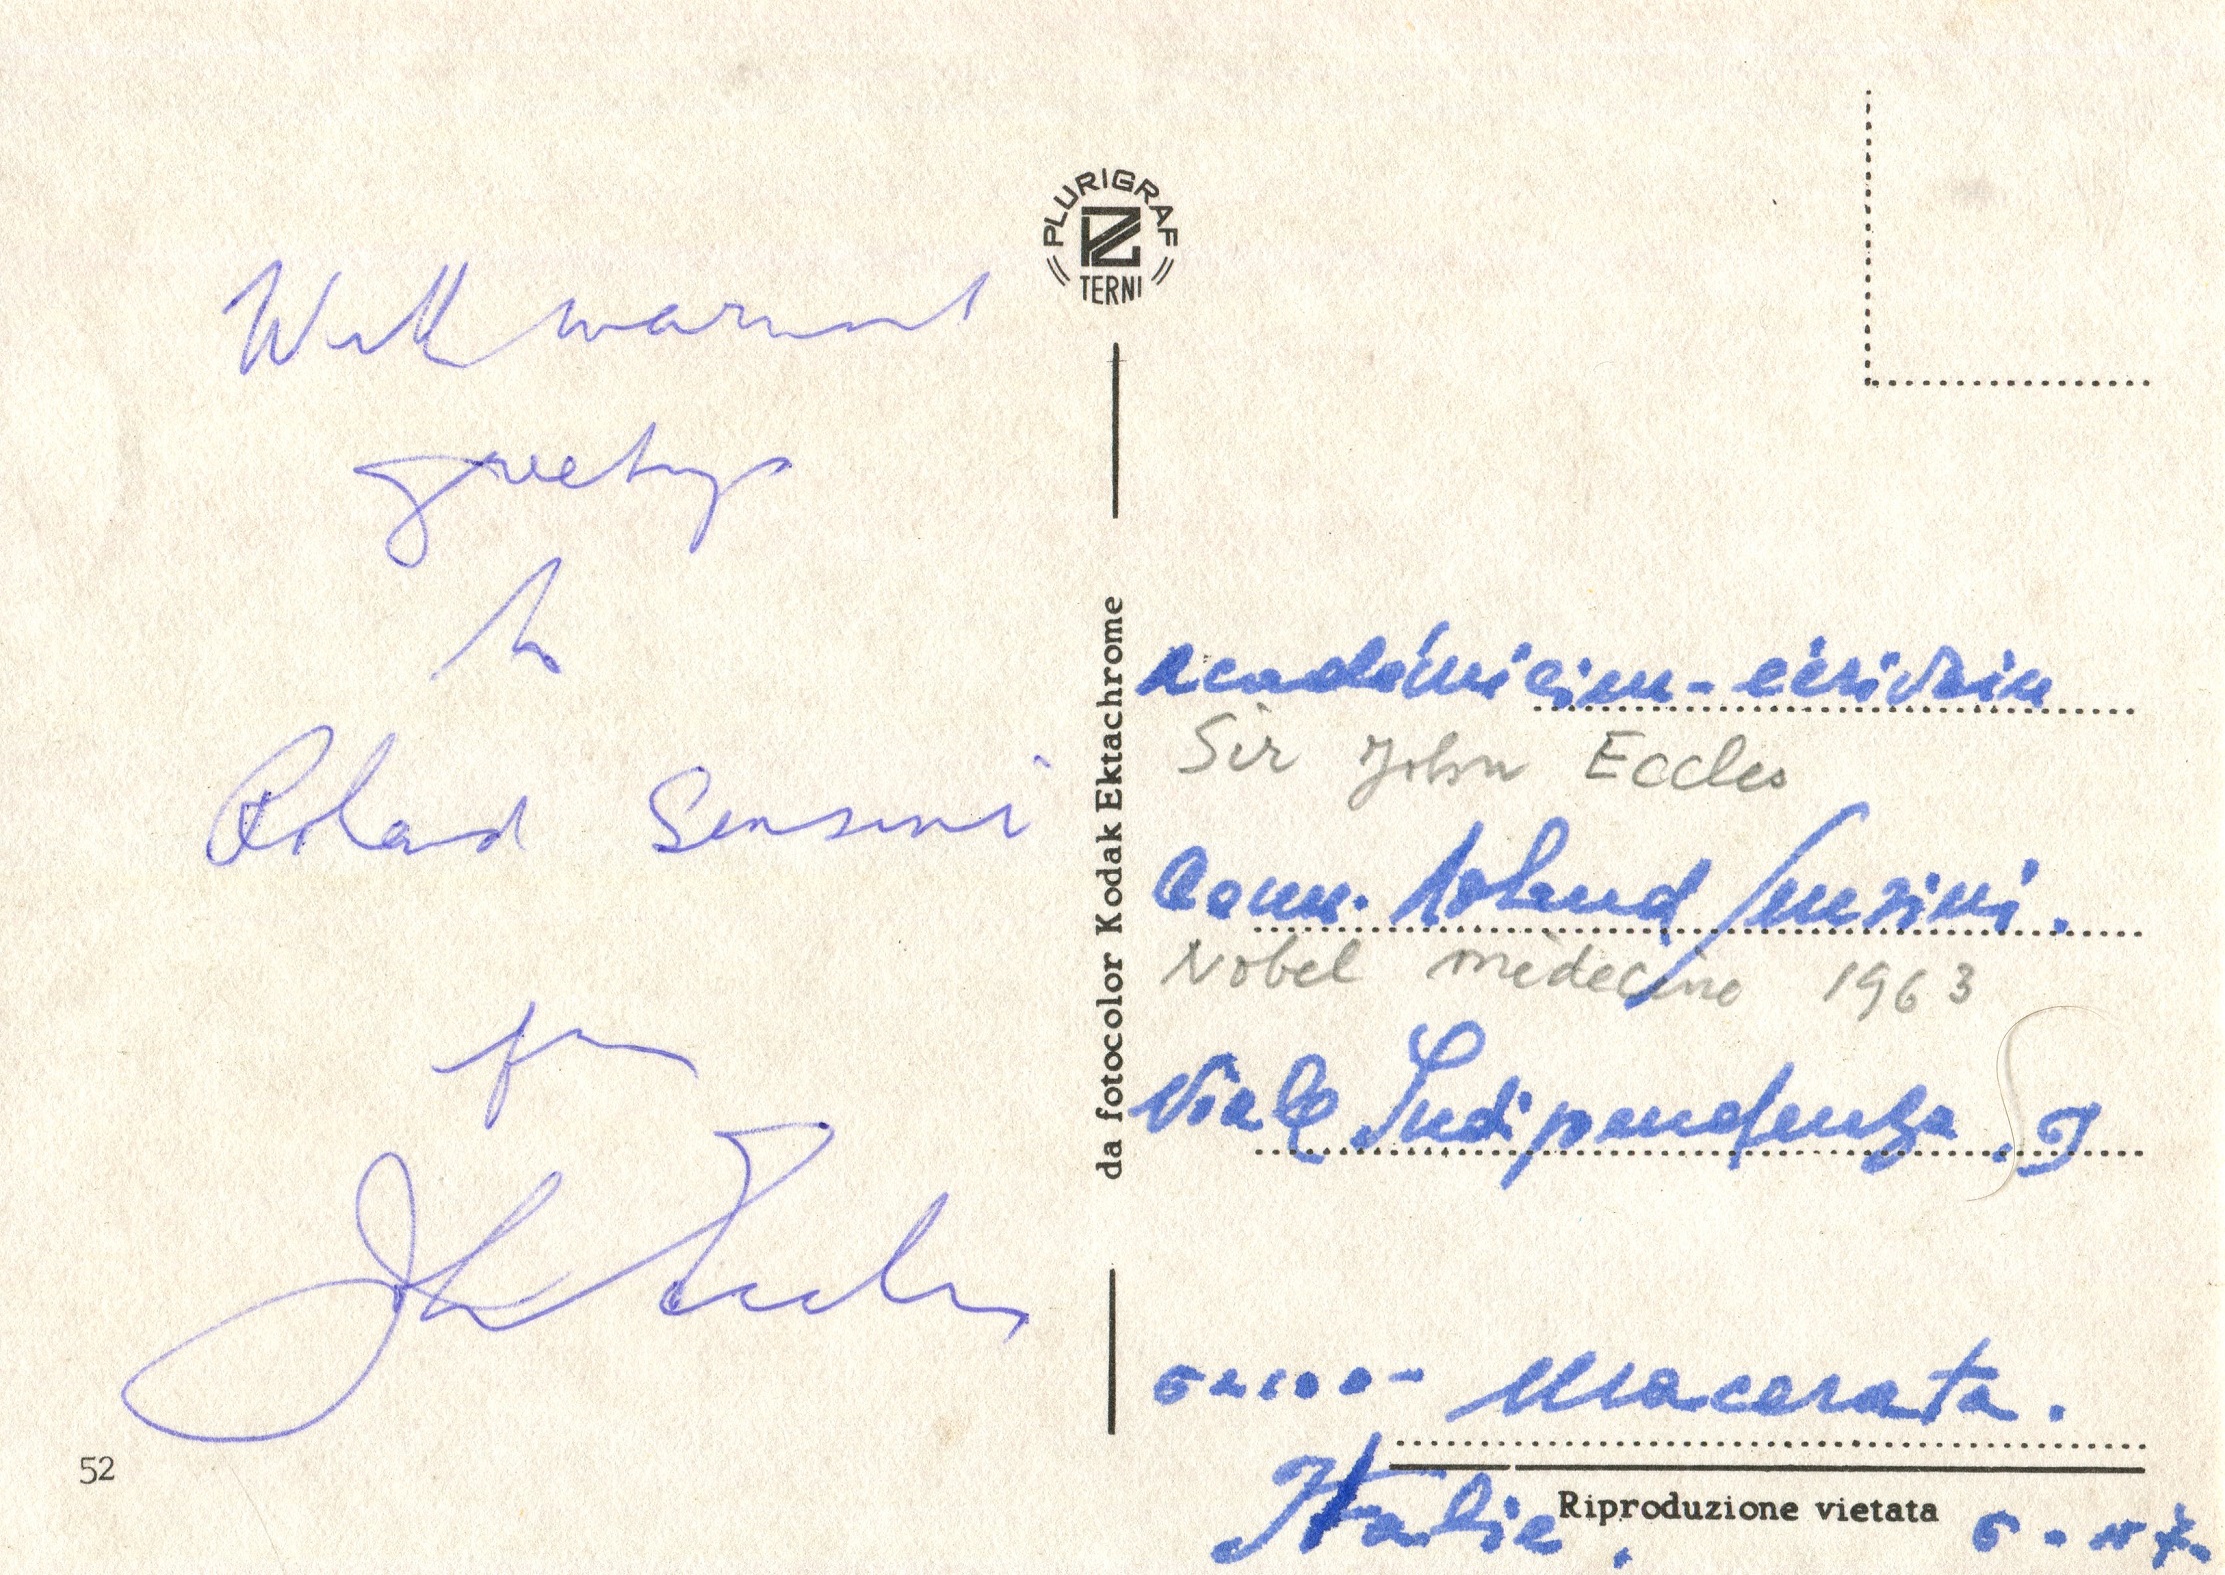 PLURIGRAF
TERNI
With warmest
greetings
to
Roland Sensini
from
John Eccles
52
da fotocolor Kodak Ektachrome
académicien-écrivain
Sir John Eccles
Comm. Roland Sensini.
Nobel médecine 1963
Viale Indipendenza.
62100- Macerata.
Italie.
Riproduzione vietata